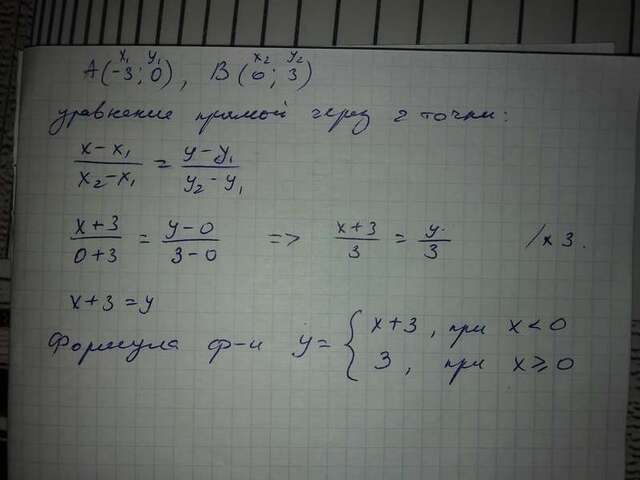 x₁ y₁ x₂ y₂
A(-3; 0), B(0; 3)
уравнение прямой через 2 точки:
x - x₁ / x₂ - x₁ = y - y₁ / y₂ - y₁
x+3 / 0+3 = y-0 / 3-0 => x+3 / 3 = y / 3 /x3.
x+3 = y
Формула ф-и y = { x+3, при x < 0
{ 3, при x ≥ 0